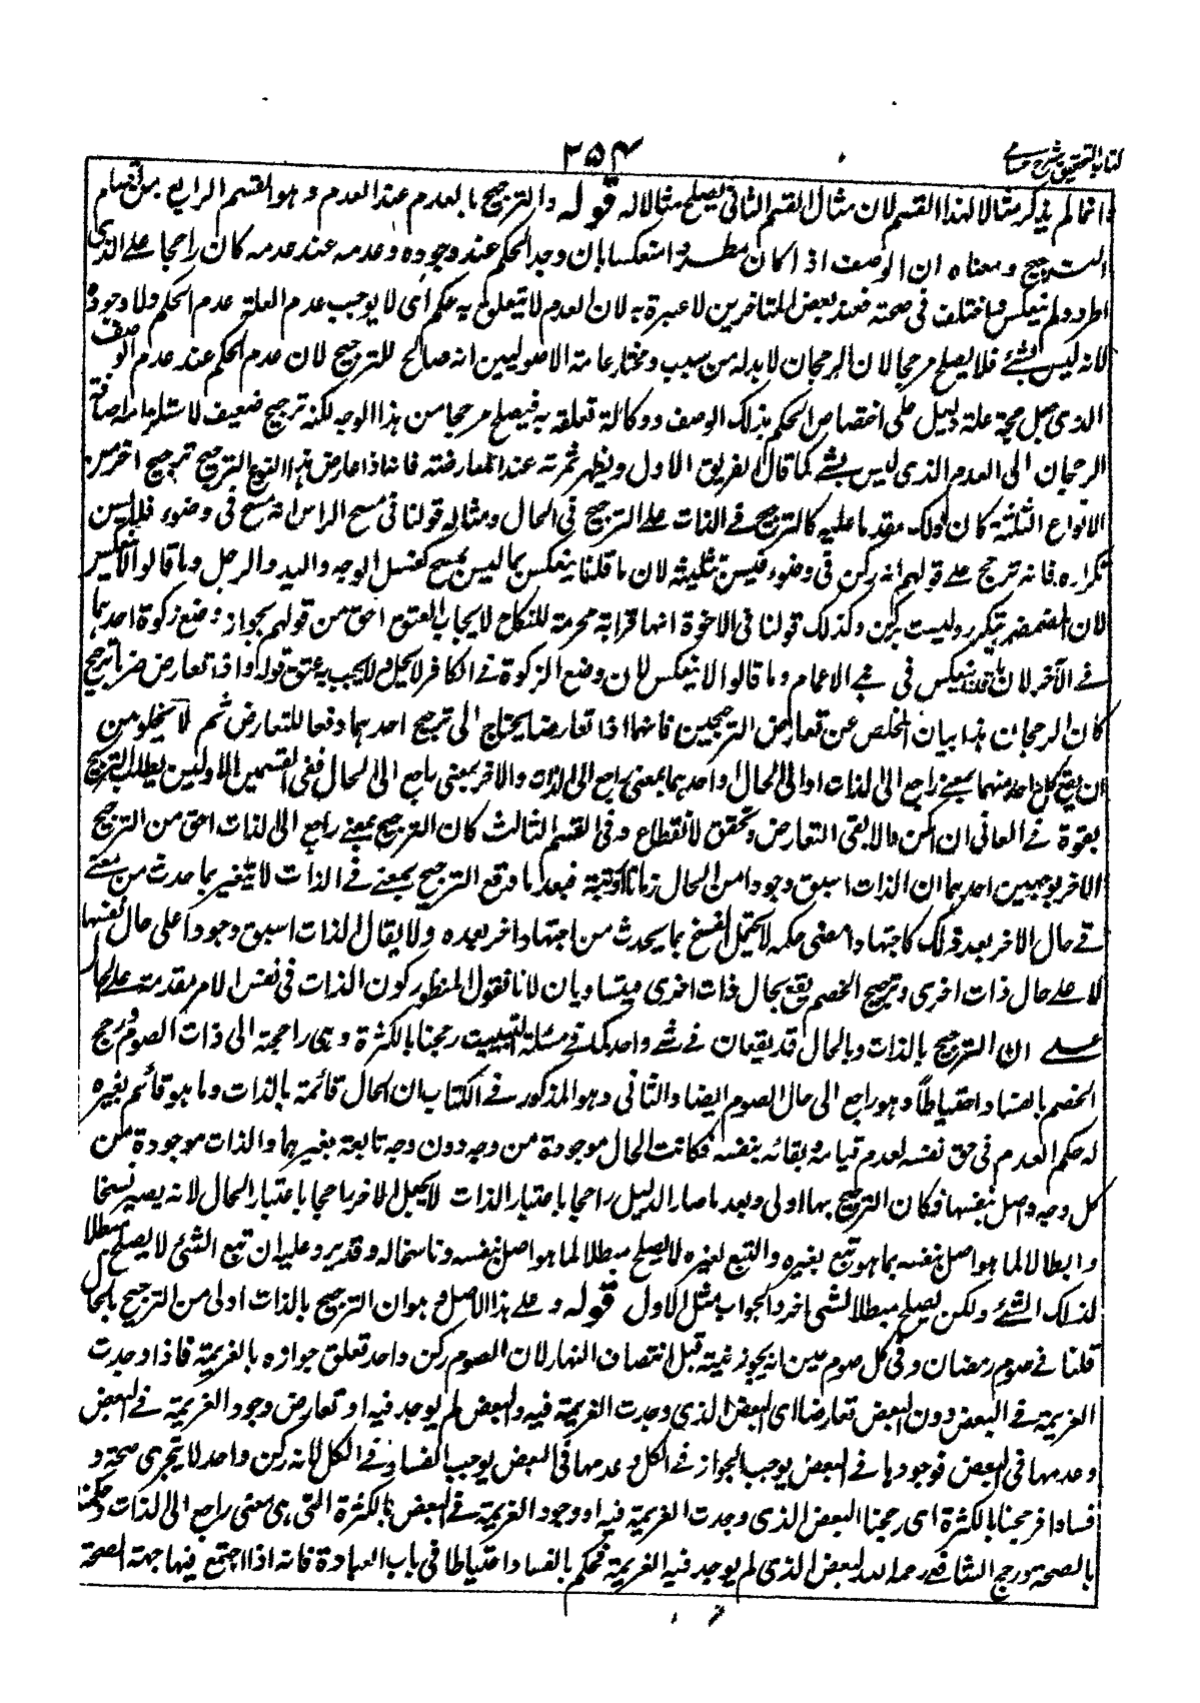 كتاب التحقيق شرح حسامي
٢٥٤
وانما لم يذكر مثالا لهذا القسم لان مثال القسم الثانى يصلح مثالا له قوله والترجيح بالعدم عند العدم وهو القسم الرابع من اقسام
الترجيح ومعناه ان الوصف اذا كان مطردا منعكسا بان وجد الحكم عند وجوده وعدمه عند عدمه كان راجحا على الذى
اطرد ولم ينعكس واختلف فى صحته فعند بعض المتاخرين لا عبرة به لان العدم لا يتعلق به حكم اى لا يوجب عدم العلة عدم الحكم ولا وجوده
لانه ليس بشئ فلا يصلح مرجحا لان الرجحان لا بد له من سبب ومختار عامة الاصوليين انه صالح للترجيح لان عدم الحكم عند عدم الوصف
الذى جعل حجة علة دليل على اختصاص الحكم بذلك الوصف ووكالة تعلقه به فيصلح مرجحا من هذا الوجه لكنه ترجيح ضعيف لاستلزامه اضافة
الرجحان الى العدم الذى ليس بشئ كما قال الفريق الاول ويظهر ثمرته عند المعارضة فانه اذا عارض هذا النوع الترجيح ترجيح اخر من
الانواع الثلثة كان ذلك مقدما عليه كالترجيح فى الذات على الترجيح فى الحال ومثاله قولنا فى مسح الراس انه مسح فى وضوء فلا يسن
تكراره فانه ترجح على قولهم انه ركن فى وضوء فيسن تثليثه لان ما قلنا ينعكس بما ليس بمسح كغسل الوجه واليد والرجل وما قالوا لا ينعكس
لان المضمضة يتكرر وليست بركن وكذلك قولنا فى الاخوة انها قرابة محرمة للنكاح لايجاب العتق احق من قولهم بجواز وضع زكوة احدهما
فى الآخر لان ما قلنا ينعكس فى بنى الاعمام وما قالوا لا ينعكس لان وضع الزكوة فى الكافر لا يحل ولا يجب به عتق قوله واذا تعارض ضربا ترجيح
كان الرجحان هذا بيان المخلص عن تعارض الترجيحين فانهما اذا تعارضا يحتاج الى ترجيح احدهما دفعا للتعارض ثم لا يخلو من
ان يقع كل واحد منهما بمعنى راجع الى الذات او الى الحال او احدهما بمعنى راجع الى الذات والاخر بمعنى راجع الى الحال ففى القسمين الاولين يطلب الترجيح
بقوة فى المعانى ان امكن والا بقى التعارض وتحقق الانقطاع وفى القسم الثالث كان الترجيح بمعنى راجع الى الذات احق من الترجيح
الاخر بوجهين احدهما ان الذات اسبق وجودا من الحال زمانا او رتبة فبعد ما وقع الترجيح بمعنى فى الذات لا يتغير بما حدث من معنى
فى حال الاخر بعد ذلك كاجتهاد امضى حكمه لا يحتمل الفسخ بما يحدث من اجتهاد اخر بعده ولا يقال الذات اسبق وجودا على حال نفسها
لا على حال ذات اخرى وترجيح الخصم يقع بحال ذات اخرى فيتساويان لانا نقول المنظور كون الذات فى نفس الامر مقدمة على الحال
على ان الترجيح بالذات وبالحال قد يقعان فى شئ واحد كما فى مسئلة التبييت رجحنا بالكثرة وهى راجحة الى ذات الصوم ورجح
الخصم بالفساد احتياطا وهو راجع الى حال الصوم ايضا والثانى وهو المذكور فى الكتاب ان الحال قائمة بالذات وما هو قائم بغيره
له حكم العدم فى حق نفسه لعدم قيامه وبقائه بنفسه فكانت الحال موجودة من وجه دون وجه تابعة بغيرها والذات موجودة من
كل وجه واصل بنفسها فكان الترجيح بها اولى وبعد ما صار الدليل راجحا باعتبار الذات لا يجعل الاخر راجحا باعتبار الحال لانه يصير نسخا
وابطالا لما هو اصل بنفسه بما هو تبع بغيره والتبع لغيره لا يصلح مبطلا لما هو اصل بنفسه وناسخا له وقد يرد عليه ان تبع الشئ لا يصلح مبطلا
لذلك الشئ ولكن يصلح مبطلا لشئ اخر والجواب مثل الاول قوله وعلى هذا الاصل وهو ان الترجيح بالذات اولى من الترجيح بالحال
قلنا فى صوم رمضان وفى كل صوم عين انه يجوز بنية قبل انتصاف النهار لان الصوم ركن واحد تعلق جوازه بالعزيمة فاذا وجدت
العزيمة فى البعض دون البعض تعارضا اى البعض الذى وجدت العزيمة فيه والبعض لم يوجد فيه او تعارض وجود العزيمة فى البعض
وعدمها فى البعض فوجودها فى البعض يوجب الجواز فى الكل وعدمها فى البعض يوجب الفساد فى الكل لانه ركن واحد لا يتجزى صحة و
فسادا فرجحنا بالكثرة اى رجحنا البعض الذى وجدت العزيمة فيه او وجود العزيمة فى البعض بالكثرة التى هى معنى راجع الى الذات وحكمنا
بالصحة ورجح الشافعى رحمه الله البعض الذى لم يوجد فيه العزيمة فحكم بالفساد احتياطا فى باب العبادة فانه اذا اجتمع فيها جهة الصحة